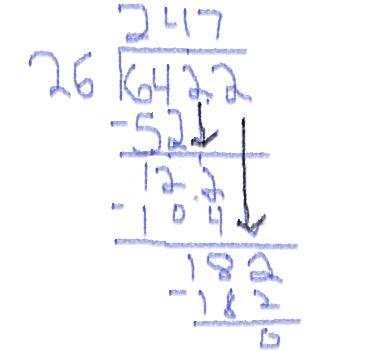 247
26 6422
-52
122
-104
182
-182
0